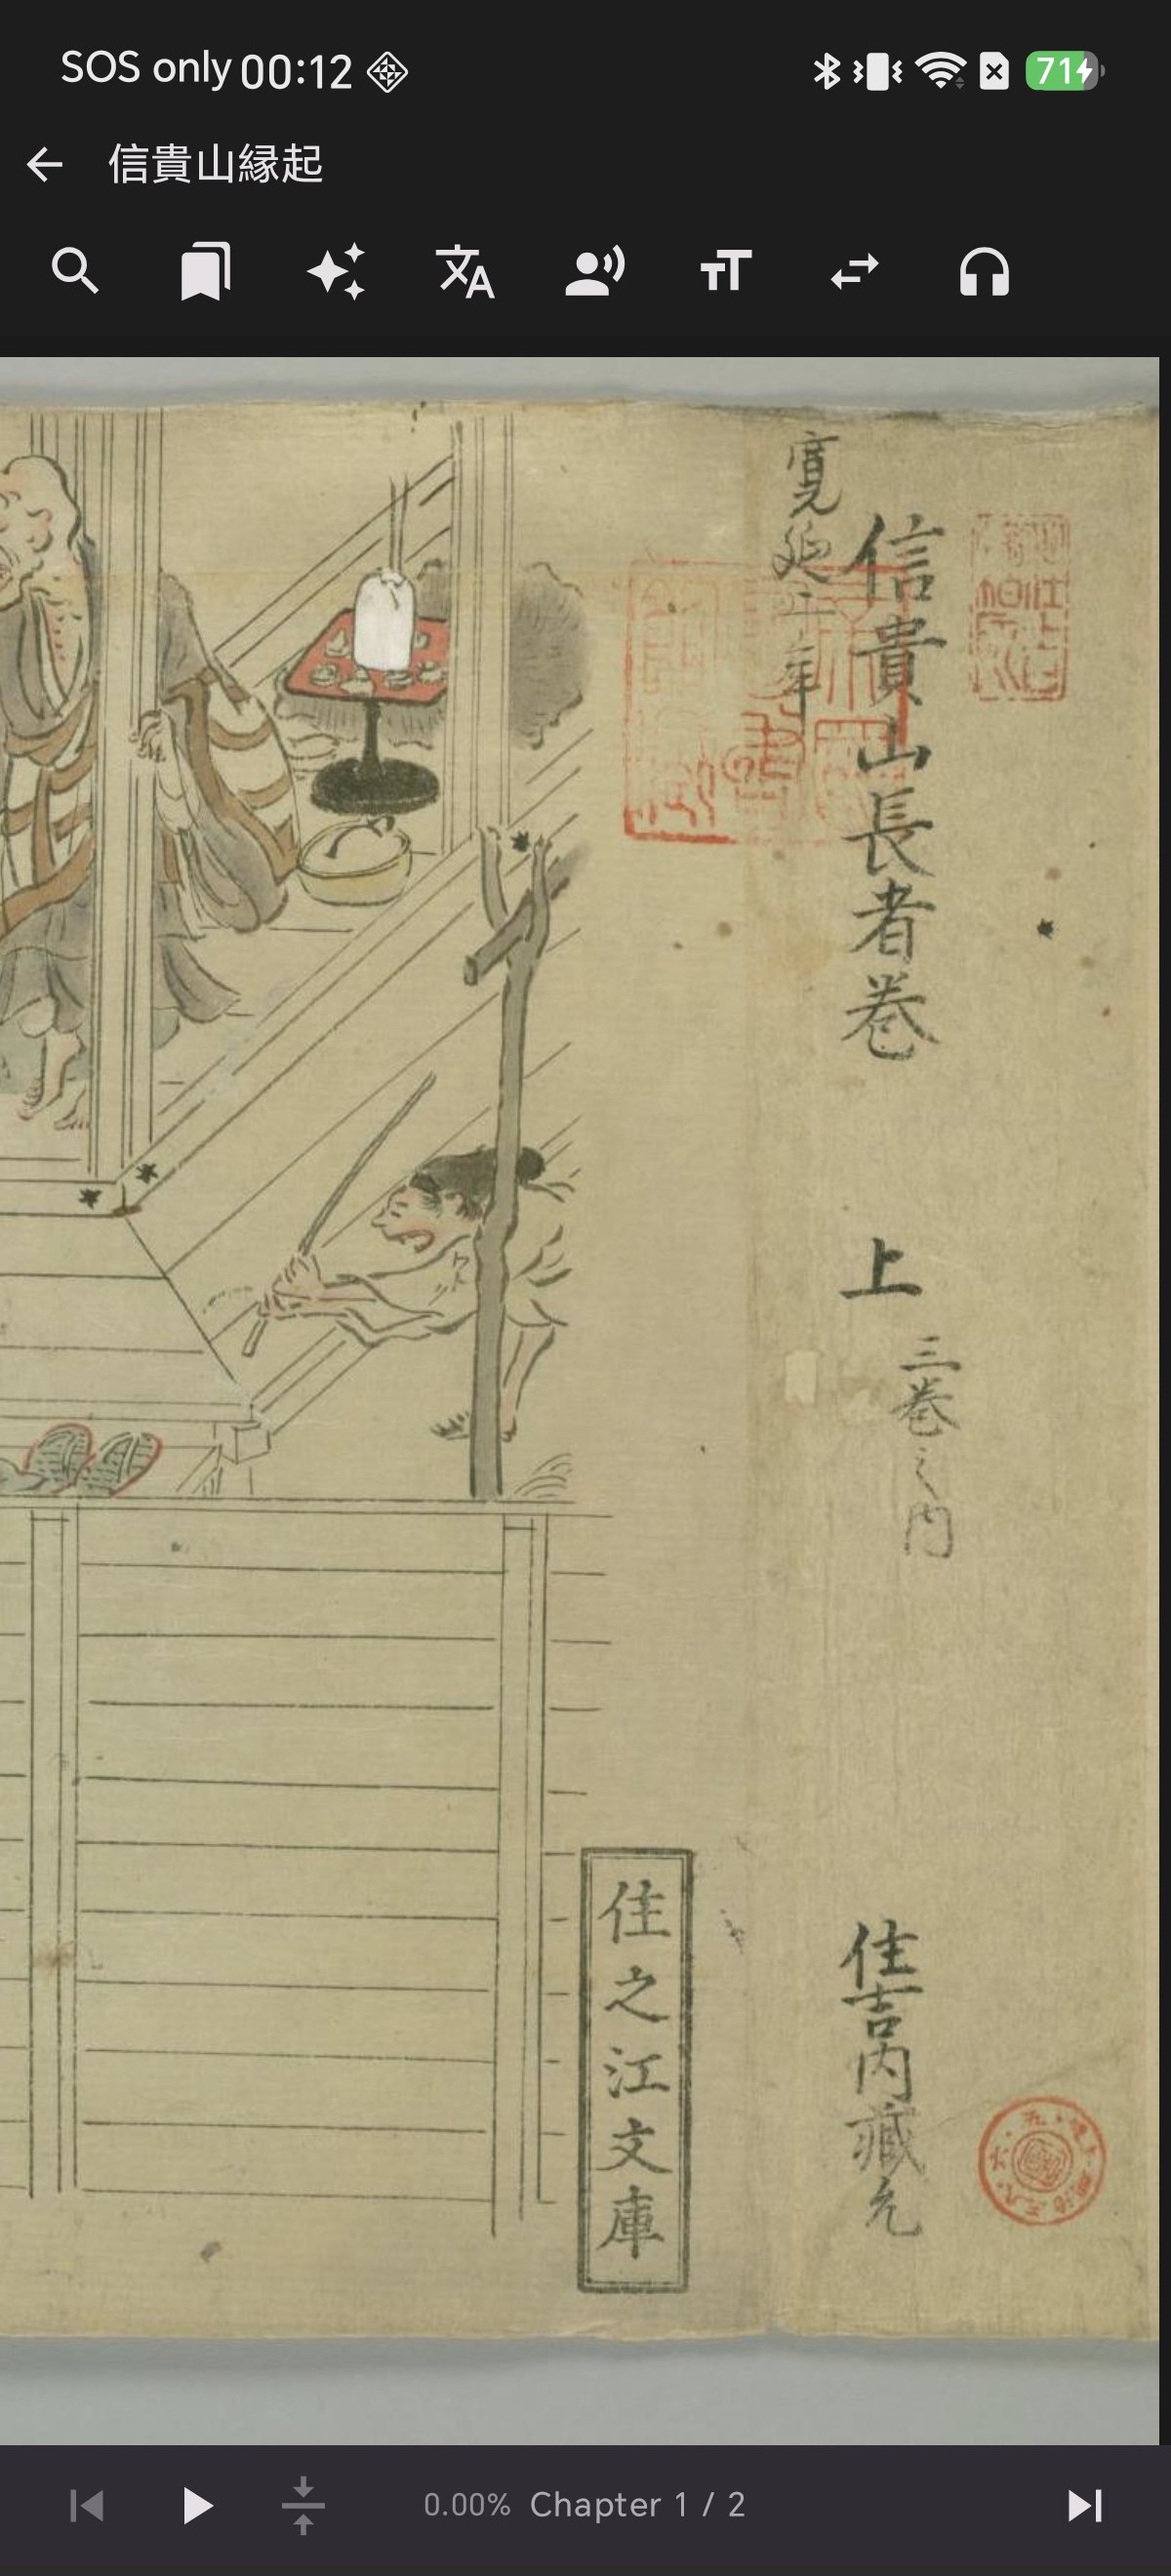 SOS only 00:12
71
信貴山縁起
信貴山長者巻 上
三巻之内
寛延二年
住吉内蔵允
住之江文庫
0.00% Chapter 1 / 2